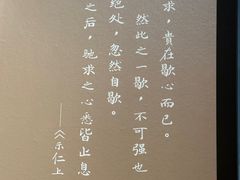 求，貴在歇心而已。
然此之一歇，不可强也
绝处，忽然自歇。
之后，驰求之心悉皆止息
——《示仁上